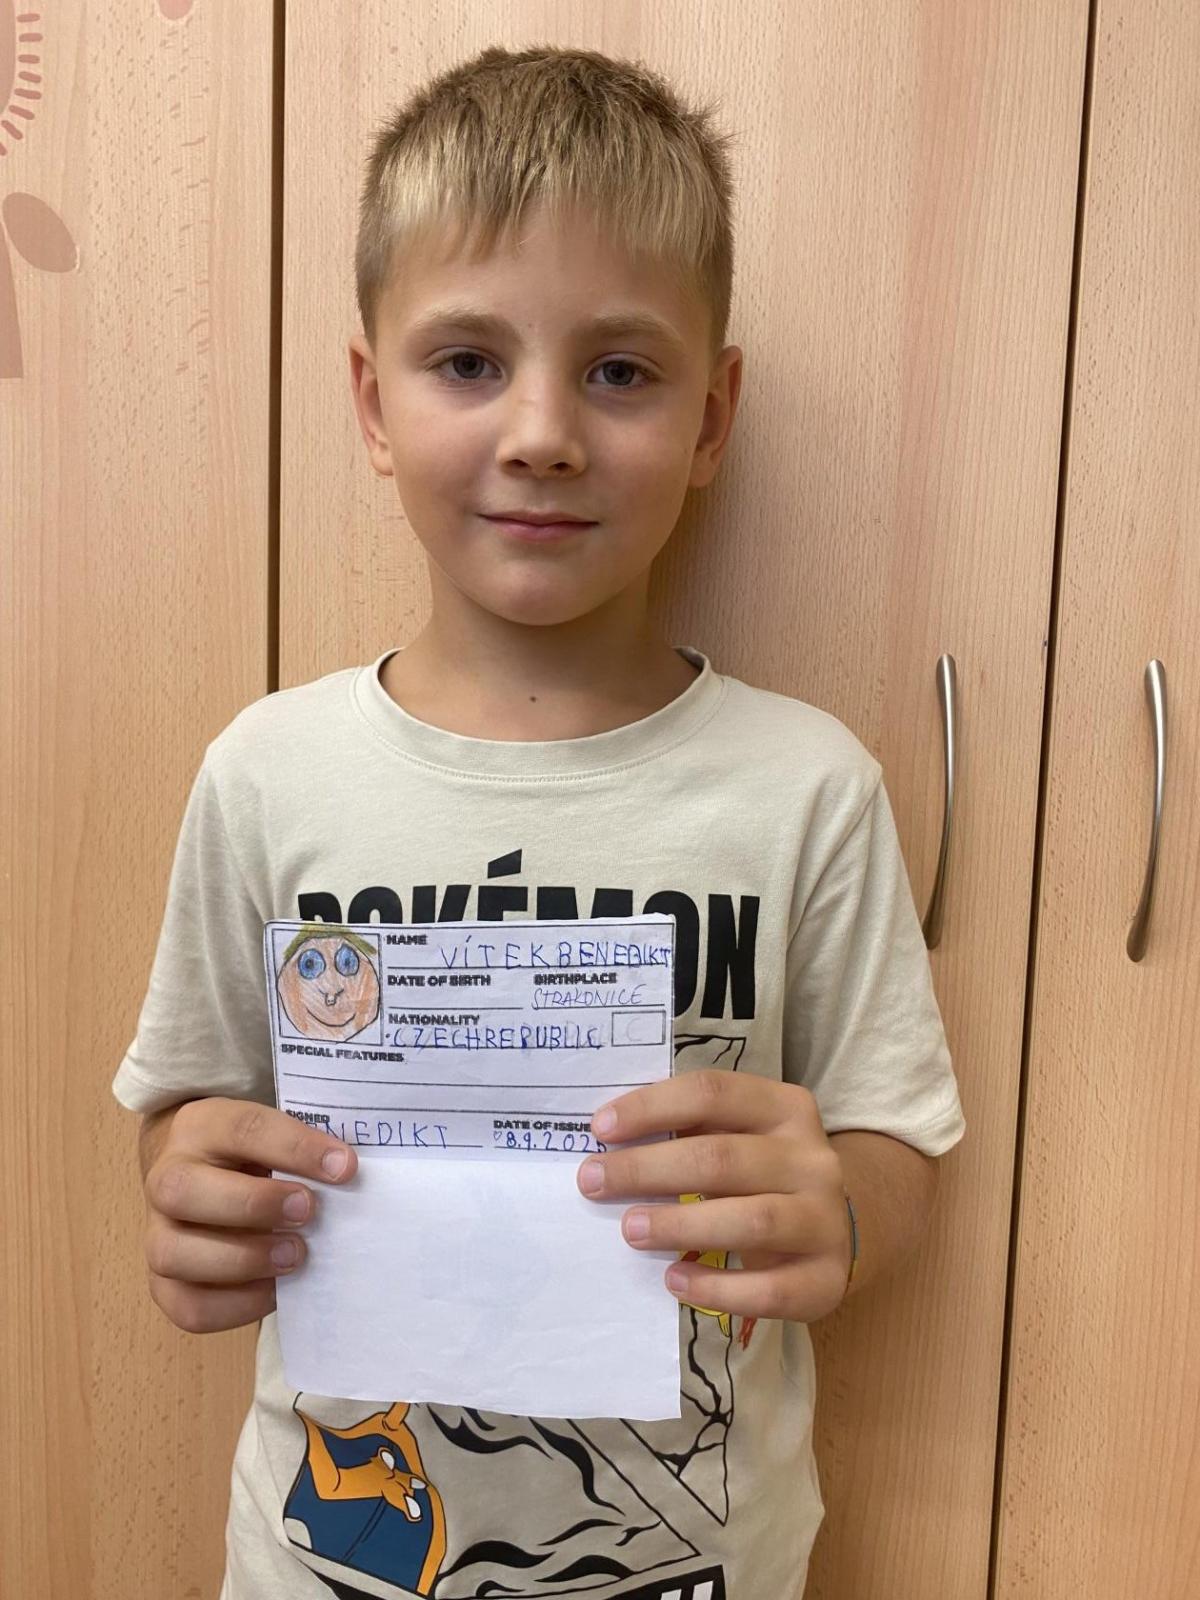 POKÉMON
NAME VÍTEK BENEDIKT
DATE OF BIRTH BIRTHPLACE
STRAKONICE
NATIONALITY
CZECH REPUBLIC
SPECIAL FEATURES
SIGNED DATE OF ISSUE
ENEDIKT 8.9.202